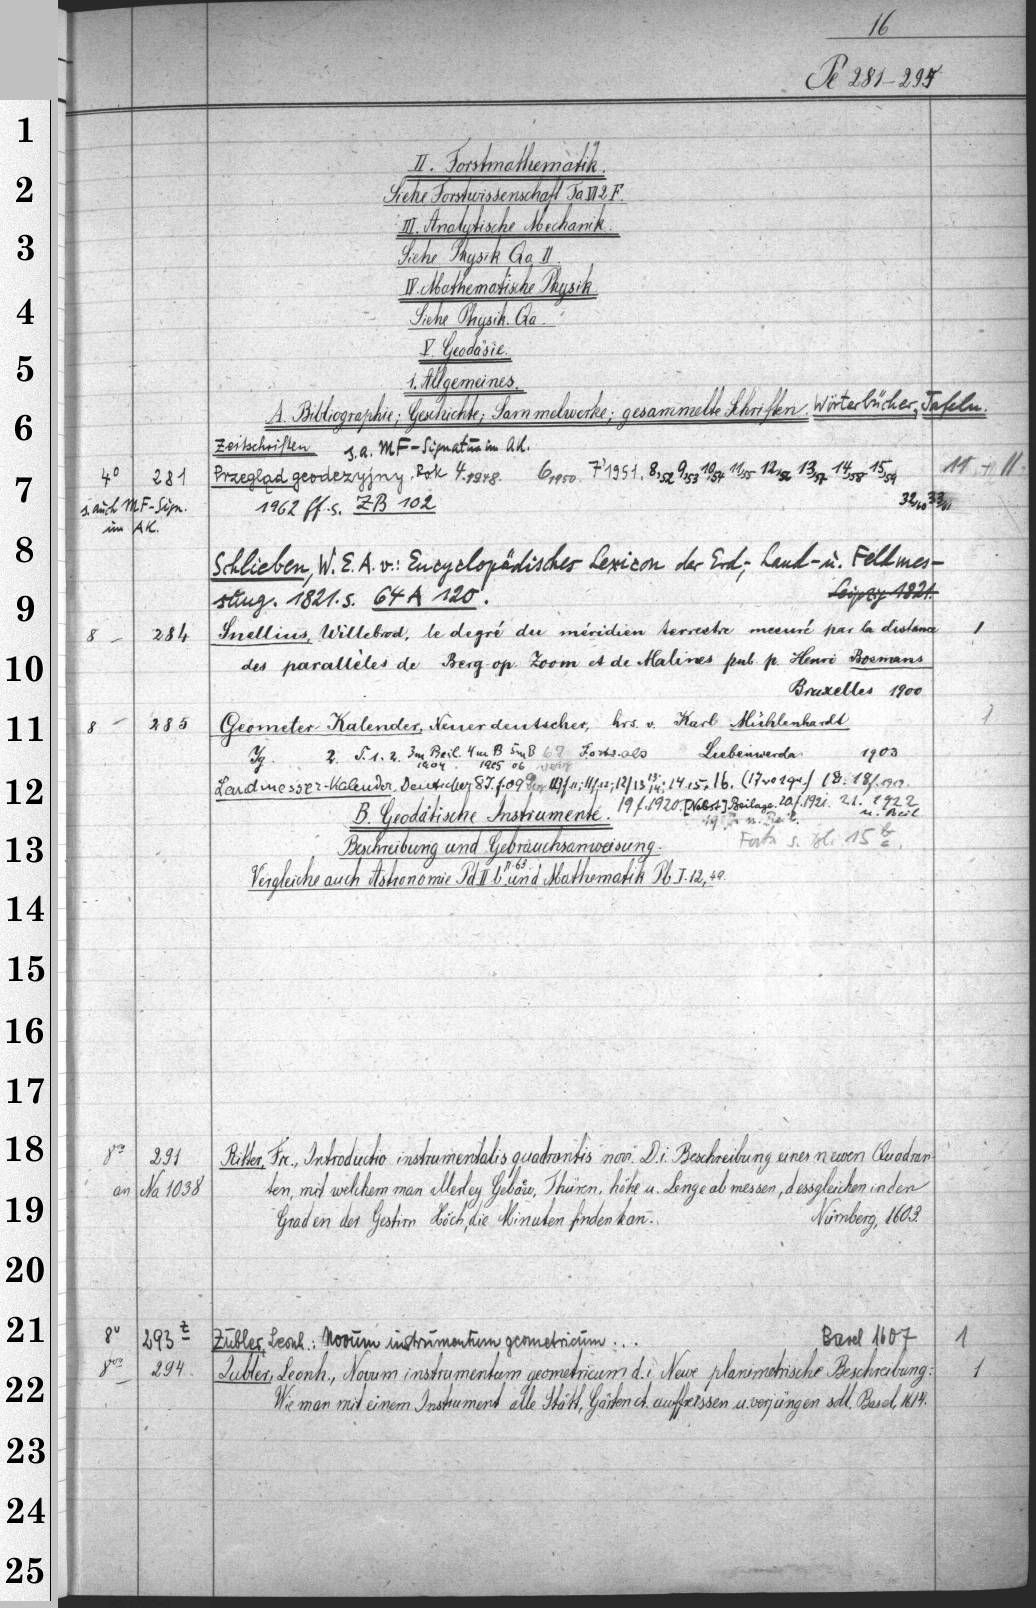 16
Pe 281-294
1
II. Forstmathematik.
2
Siehe Forstwissenschaft Ta VI 2 F.
III. Analytische Mechanik.
3
Siehe Physik Qa II.
IV. Mathematische Physik
4
Siehe Physik. Qa.
V. Geodäsie.
5
1. Allgemeines.
A. Bibliographie; Geschichte; Sammelwerke; gesammelte Schriften. Wörterbücher, Tafeln.
6
Zeitschriften s.a. MF-Signatur im AK.
4° 281 Przegląd geodezyjny. Rok 4.1948. 6,1950 7 1951. 8,52 9,53 10,54 11,55 12,56 13,57 14,58 15,59 11 11
7
s. auch MF-Sign. 1962 ff. s. ZB 102 32,60 33,61
im AK.
8
Schlieben, W. E. A. v.: Encyclopädisches Lexicon der Erd-, Land- u. Feldmes-
9
sung. 1821. s. 64 A 120. Leipzig 1821.
8 - 284 Snellius, Willebrod, le degré du méridien terrestre mesuré par la distance 1
10
des parallèles de Berg op Zoom et de Malines pub. p. Henri Bosmans
Bruxelles 1900
11
8 - 285 Geometer-Kalender, Neuer deutscher, hrs. v. Karl Mühlenhardt 1
Jg. 2. S. 1. 2. 3 m Beil. 1904. 4 m B 1905 5 m B 06 Forts. als Liebenwerda 1903
12
Landmesser-Kalender, Deutscher 8 J. f. 09
19 f. 1920. [Nebst] Beilage. 20 f. 1921. 21. 1922 u. Beil
B. Geodätische Instrumente.
13
Beschreibung und Gebrauchsanweisung. Forts. s. Bl. 15 b
Vergleiche auch Astronomie Pd II b n. 63 und Mathematik Pb I. 12, 49.
14
15
16
17
18
8vo 291 Ritter, Fr., Introductio instrumentalis quadrantis novi. D. i. Beschreibung eines newen Quadran-
an Na 1038 ten, mit welchem man allerley Gebäw, Thüren, höhe u. Lenge abmessen, dessgleichen in den
19
Graden der Gestirn Höch, die Minuten finden kan. Nürnberg, 1603.
20
21
8° 293 z Zubler, Leonh.: Novum instrumentum geometricum ... Basel 1607 1
8vo 294. Zubler, Leonh., Novum instrumentum geometricum d. i. Newe planimetrische Beschreibung: 1
22
Wie man mit einem Instrument alle Stätt, Gärten et. auffreissen u. verjüngen soll. Basel, 1614.
23
24
25